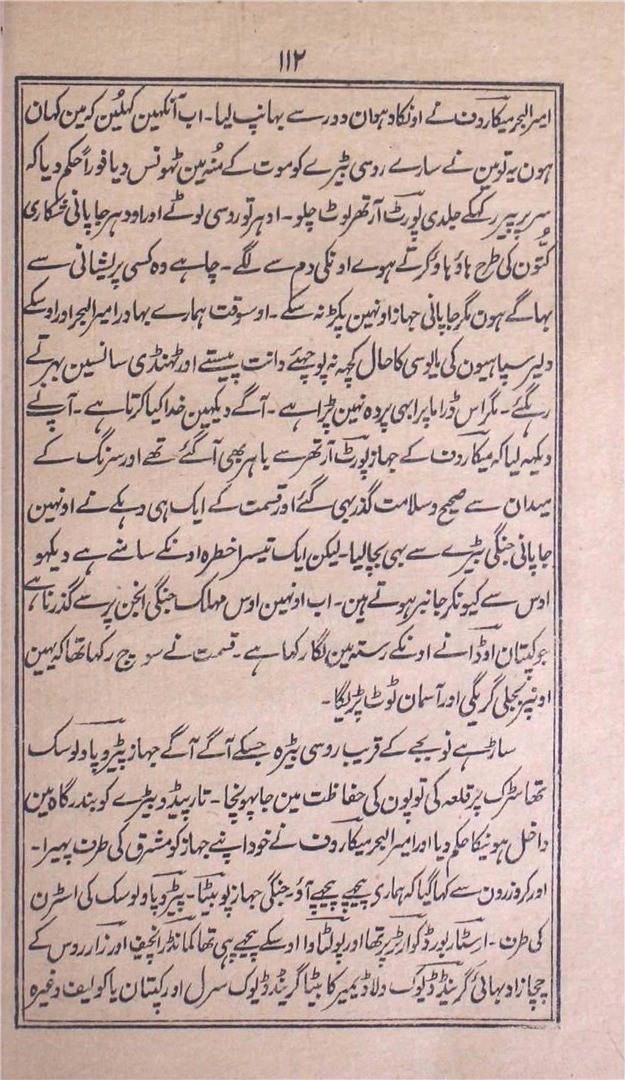 ۱۱۲
امیر البحر میکاروف نے اونکا دہوان دور سے بہانپ لیا۔ اب آنکہین کہلیں کہ مین کہان
ہون یہ تو مین نے سارے روسی بیڑے کو موت کے مُنہ مین ٹہونس دیا فوراً حکم دیا کہ
سر پر پیر رکہکے جلدی پورٹ آرتھر لوٹ چلو۔ ادہر تو روسی لوٹے اور اودہر جاپانی شکاری
کُتون کی طرح ہاؤ ہاؤ کرتے ہوے اونکی دم سے لگے۔ چاہے وہ کسی پریشانی سے
بہاگے ہون مگر جاپانی جہاز اونہین پکڑ نہ سکے۔ اوسوقت ہمارے بہادر امیر البحر اور اوسکے
دلیر سپاہیون کی مایوسی کا حال کچہہ نہ پوچہئے دانت پیستے اور ٹہنڈی سانسین بہرتے
رہگئے۔ مگر اس ڈراما پر ابہی پردہ نہین پڑا ہے۔ آگے دیکہین خدا کیا کرتا ہے۔ آپ نے
دیکہہ لیا کہ میکاروف کے جہاز پورٹ آرتھر سے باہر بھی آگئے تھے اور سرنگ کے
میدان سے صحیح و سلامت گذر بہی گئے اور قسمت کے ایک ہی دہکے نے اونہین
جاپانی جنگی بیڑے سے بہی بچا لیا۔ لیکن ایک تیسرا خطرہ اونکے سامنے ہے دیکہو
اوس سے کیونکر جانبر ہوتے ہین۔ اب اونہین اوس مہلک جنگی انجن پر سے گذرنا ہے
جو کپتان اوڈا نے اونکے رستہ مین لگا رکہا ہے۔ قسمت نے سوچ رکہا تھا کہ یہین
اونپر بجلی گریگی اور آسمان ٹوٹ پڑیگا۔
ساڑہے نو بجے کے قریب روسی بیڑہ جسکے آگے آگے جہاز پیٹروپاولوسک
تھا سڑک پر قلعہ کی توپون کی حفاظت مین جا پہونچا۔ تارپیڈو بیڑے کو بندرگاہ مین
داخل ہونیکا حکم دیا اور امیر البحر میکاروف نے خود اپنے جہاز کو مشرق کی طرف پہیرا۔
اور کروزرون سے کہا گیا کہ ہماری پیچہے پیچہے آؤ۔ جنگی جہاز پوبیٹا۔ پیٹروپاولوسک کی اسٹرن
کی طرف۔ اسٹاربورڈ کوارٹر پر تھا اور پولٹاوا اوسکے پیچہے ہی تھا کمانڈر انچیف اور زار روس کے
چچازاد بہائی گرینڈ ڈیوک ولاڈیمیر کا بیٹا گرینڈ ڈیوک سرل اور کپتان یاکولیف وغیرہ